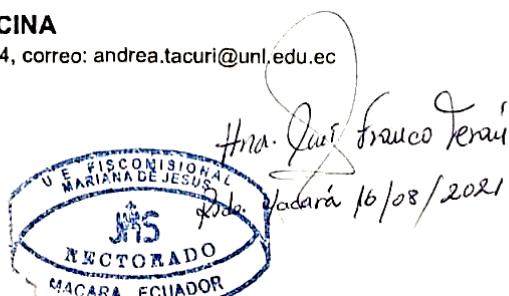 CINA
4, correo: andrea.tacuri@unl.edu.ec
Hna. Franco Terán
16/08/2021
U E FISCOMISIONAL
MARIANA DE JESUS
JHS
RECTORADO
MACARA ECUADOR